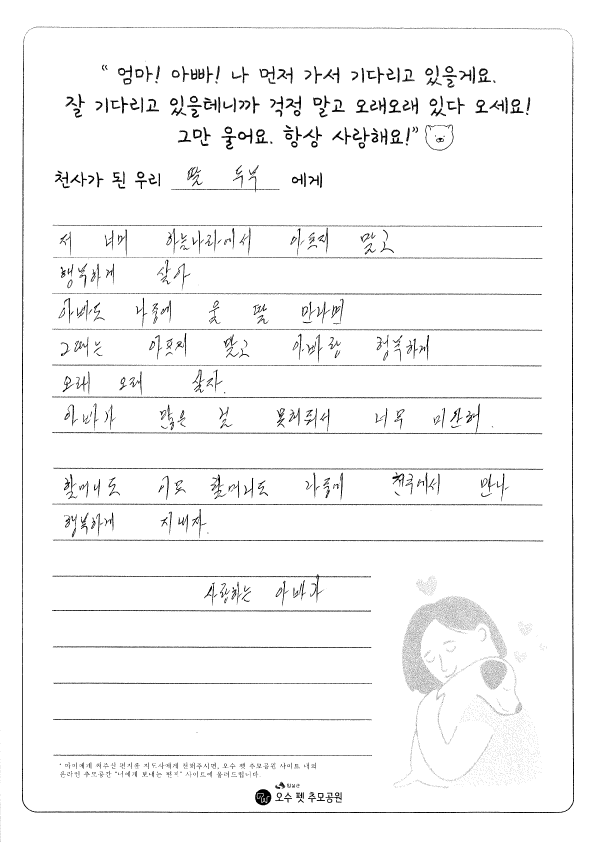 “ 엄마! 아빠! 나 먼저 가서 기다리고 있을게요.
잘 기다리고 있을테니까 걱정 말고 오래오래 있다 오세요!
그만 울어요. 항상 사랑해요!”
천사가 된 우리 딸 두부 에게
저 너머 하늘나라에서 아프지 말고
행복하게 살아
아빠도 나중에 울 딸 만나면
그때는 아프지 말고 아빠랑 행복하게
오래 오래 살자.
아빠가 많은 걸 못해줘서 너무 미안해.
할머니도 이모 할머니도 나중에 천국에서 만나
행복하게 지내자.
사랑하는 아빠가
* 아이에게 써주신 편지를 지도사에게 전해주시면, 오수 펫 추모공원 사이트 내의
온라인 추모공간 "너에게 보내는 편지" 사이트에 올려드립니다.
임실군
오수 펫 추모공원